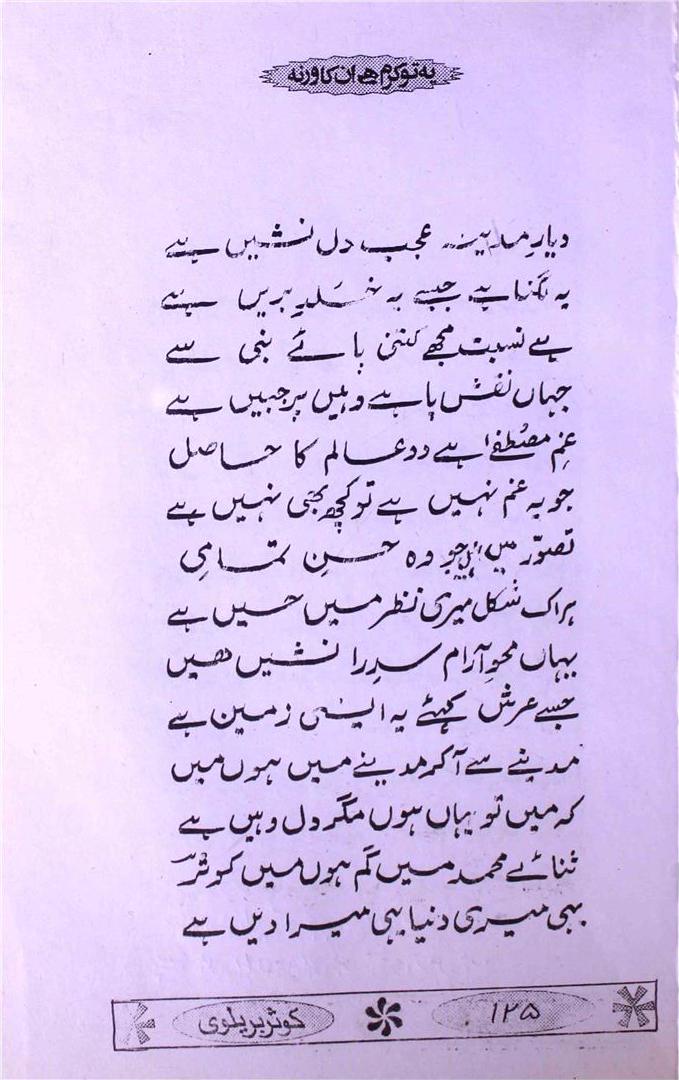 یہ تو کرم ھے ان کا ورنہ
دیارِ مدینہ عجب دل نشیں ہے
یہ لگتا ہے جیسے یہ خلدِ بریں ہے
ہے نسبت مجھے کتنی پائے نبی سے
جہاں نقش پا ہے وہیں پر جبیں ہے
غمِ مصطفےٰ ہے دو عالم کا حاصل
جو یہ غم نہیں ہے تو کچھ بھی نہیں ہے
تصوّر میں جو وہ حسنِ تمامی
ہر اک شکل میری نظر میں حسیں ہے
یہاں محوِ آرام سدرا نشیں ھیں
جسے عرش کہئے یہ ایسی زمین ہے
مدینے سے آکر مدینے میں ہوں میں
کہ میں تو یہاں ہوں مگر دل وہیں ہے
ثنائے محمد میں گم ہوں میں کوثرؔ
یہی میری دنیا یہی میرا دیں ہے
۱۲۵
کوثر بریلوی